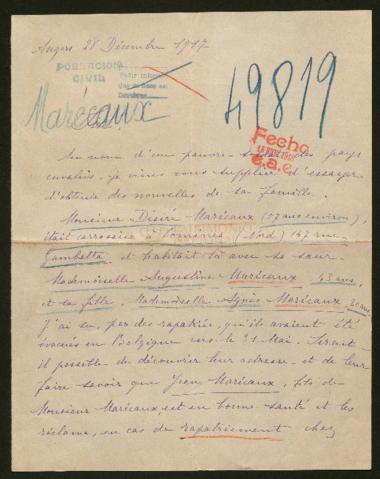 Angers 28 Décembre 1917
POBLACION
CIVIL
Marécaux
49819
Fecha
Sire,
Au nom d'une pauvre des pays
envahis, je viens vous supplier d'essayer
d'obtenir des nouvelles de sa famille.
Monsieur Désiré Marécaux (57 ans environ),
était carrossier à Comines (Nord) 147 rue
Gambetta et habitait là avec sa sœur
Mademoiselle Augustine Marécaux 43 ans,
et sa fille, Mademoiselle Agnès Marécaux 20 ans.
J'ai su, par des rapatriés, qu'ils avaient été
évacués en Belgique vers le 31 Mai. Serait-
il possible de découvrir leur adresse et de leur
faire savoir que Jean Marécaux, fils de
Monsieur Marécaux, est en bonne santé et les
réclame, en cas de rapatriement chez